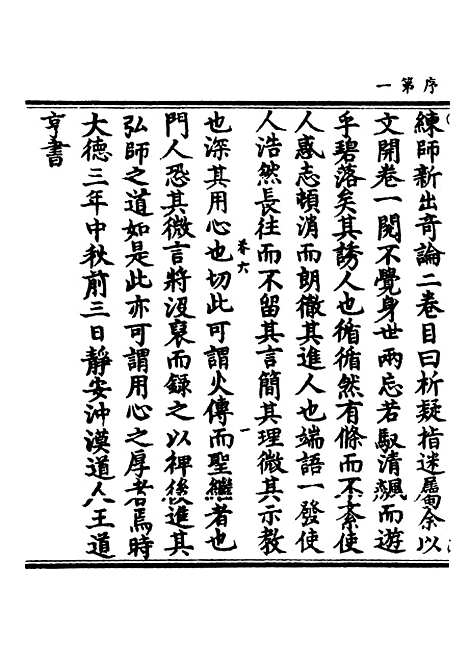 序第一
練師新出竒論二卷目曰析疑指迷屬余以
文開卷一閱不覺身世兩忘若馭清飈而遊
乎碧落矣其誘人也循循然有條而不紊使
人惑志頓消而朗徹其進人也端語一發使
人浩然長往而不留其言簡其理微其示教
卷六
一
也深其用心也切此可謂火傳而聖繼者也
門人恐其微言將沒裒而録之以裨後進其
弘師之道如是此亦可謂用心之厚者焉時
大德三年中秋前三日靜安沖漠道人王道
亨書